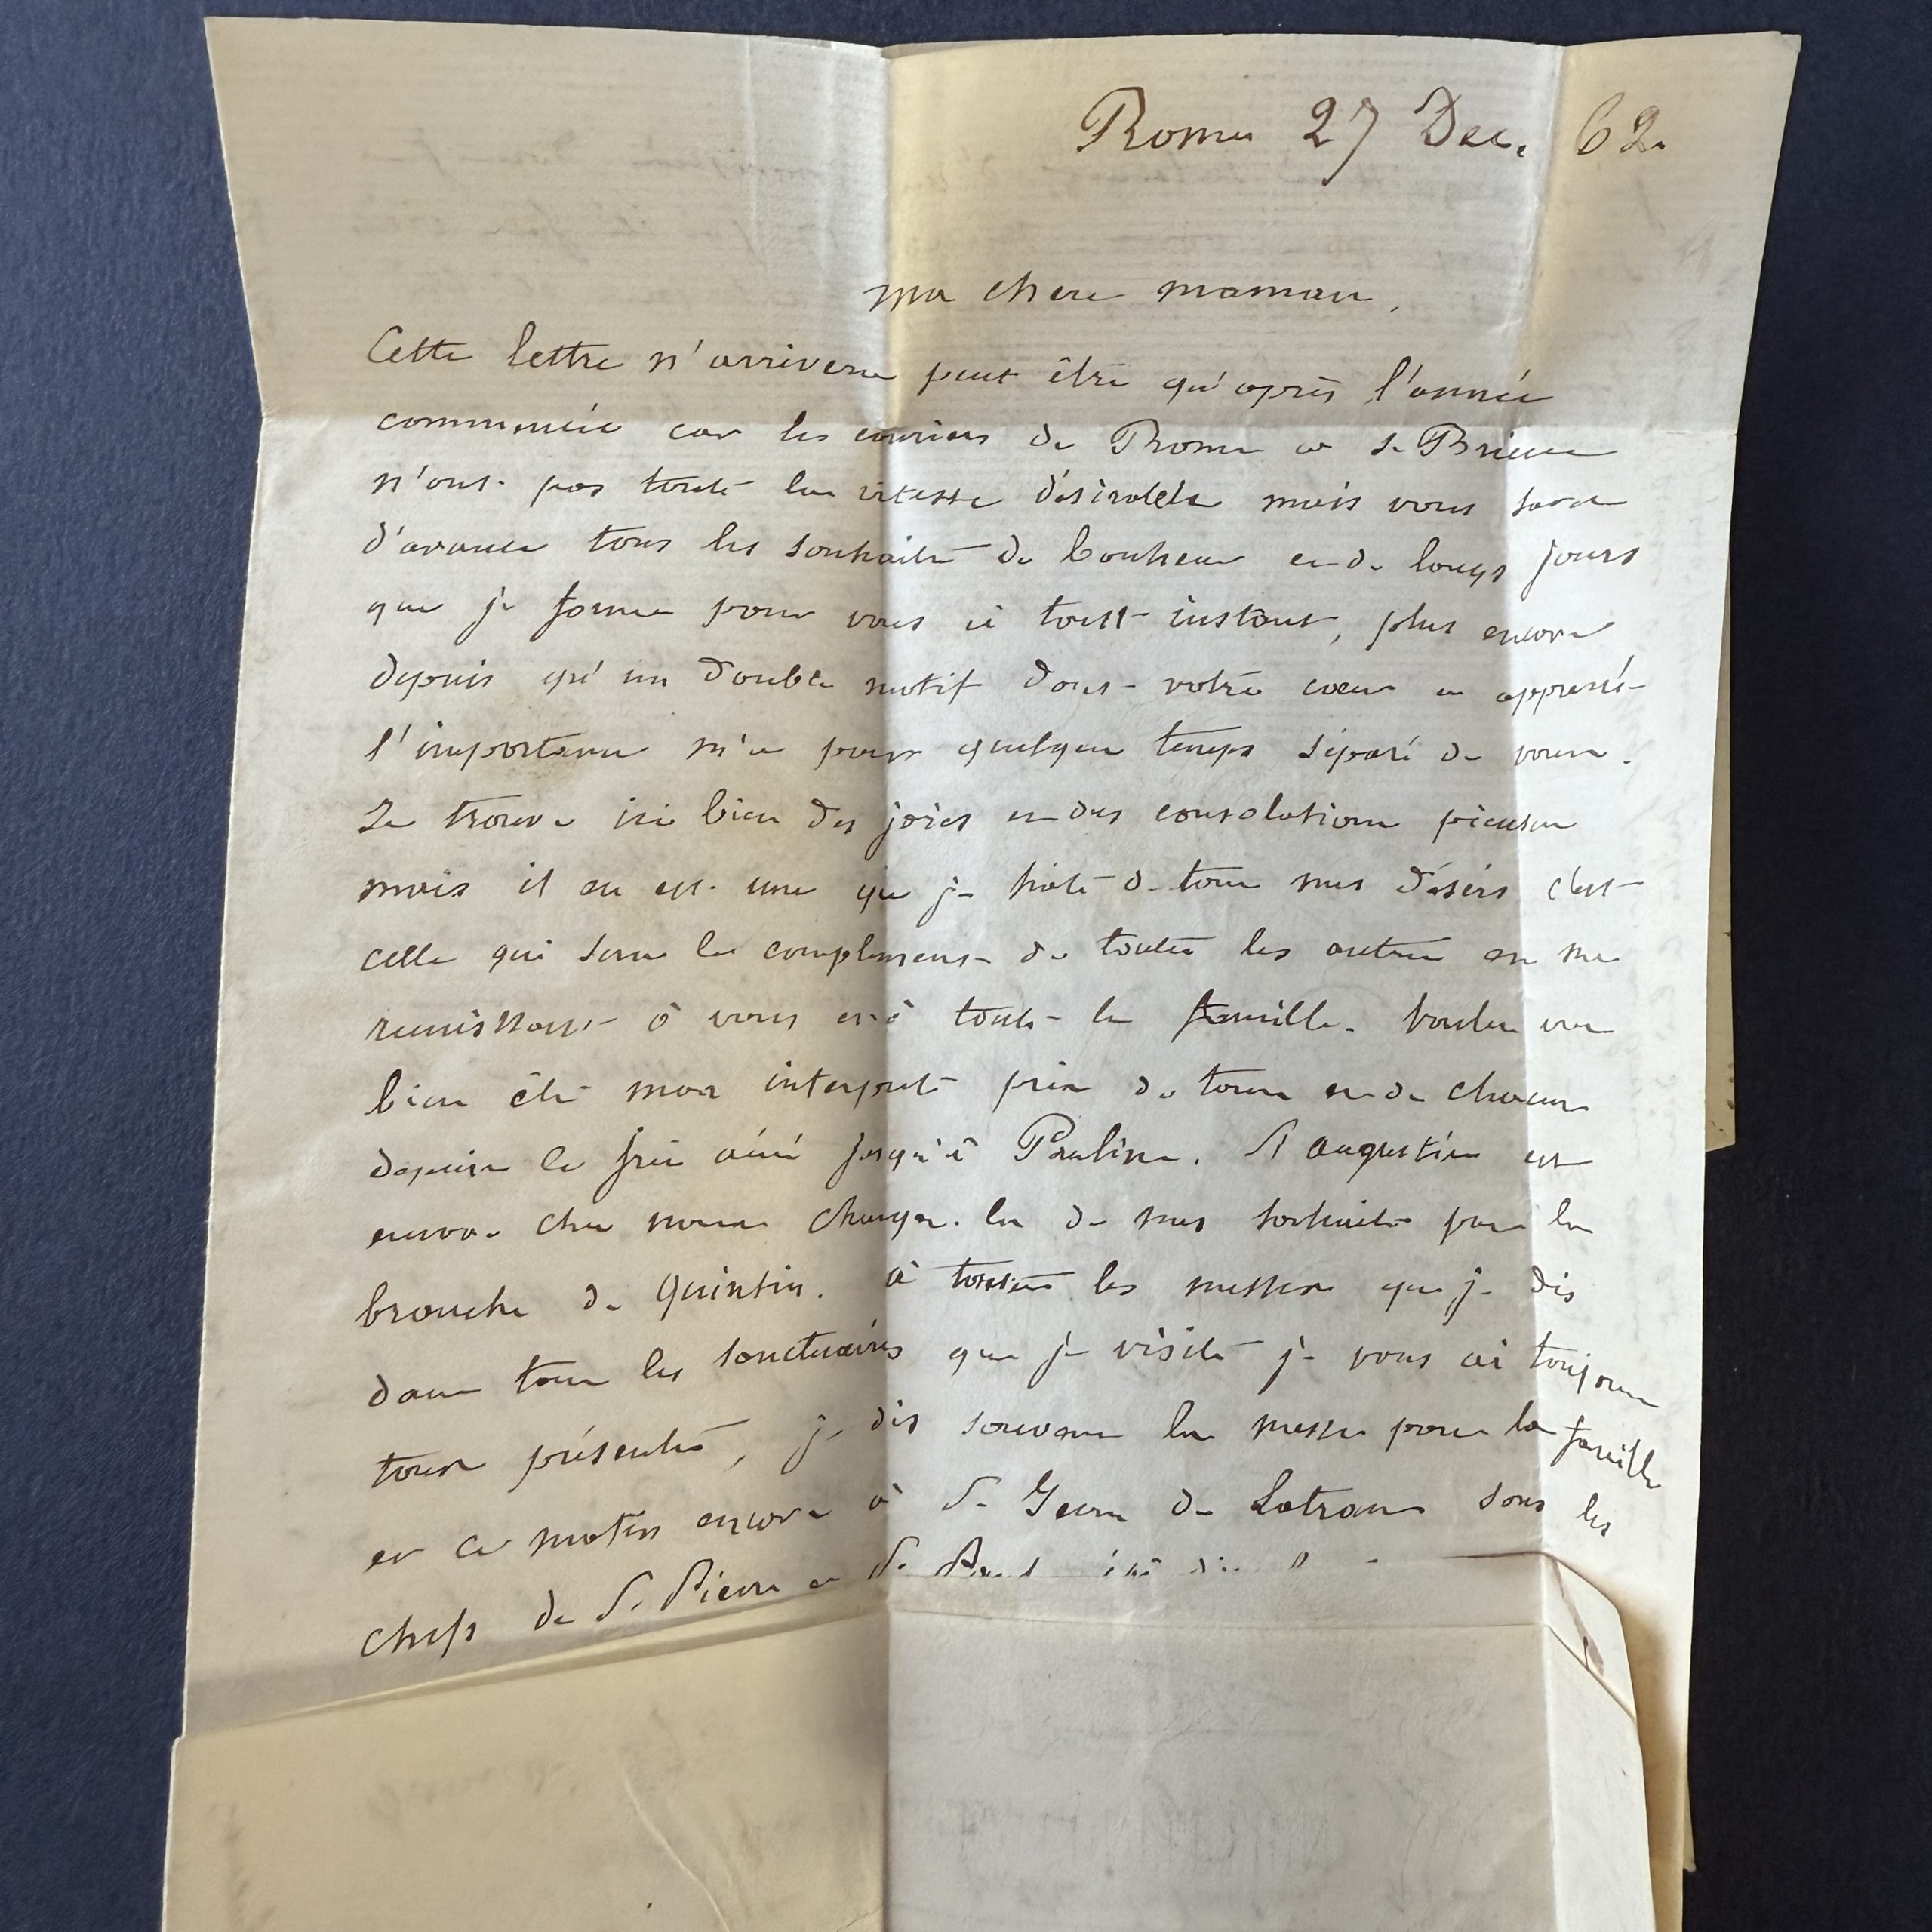 Rome 27 Dec. 62
ma chere maman,
Cette lettre n'arrivera peut être qu'après l'année
commencée car les couriers de Rome a St Brieuc
n'ont pas toute la vitesse désirable mais vous savez
d'avance tous les souhaits de bonheur et de longs jours
que je forme pour vous à tout instant, plus encore
depuis qu'un double motif dont votre cœur a apprecié
l'importance m'a pour quelque temps séparé de vous.
Je trouve ici bien des joies et des consolations pieuses
mais il en est une que je hate de tous mes désirs c'est
celle qui sera le complement de toutes les autres en me
reunissant à vous et à toute la famille. Voulez vous
bien être mon interprete près de tous et de chacun
depuis le frère ainé jusqu'à Pauline. Si augustine est
encore chez nous chargez la de mes souhaits pour la
branche de Quintin. à toutes les messes que je dis
dans tous les sanctuaires que je visite je vous ai toujours
tous présentés, je dis souvent la messe pour la famille
et ce matin encore à St Jean de Latran sous les
chefs de St Pierre et St Paul